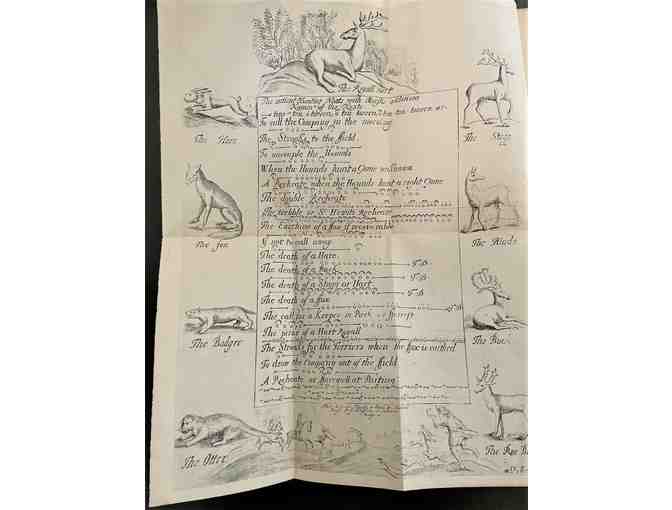 The Royall Hart
The antient Hunting Notes with
Names of the Notes
To call the Company in the morning
The Stroake to the ffield
To uncouple the Hounds
When the Hounds hunt a Game unknown
A Recheate when the Hounds hunt a right Game
The double Recheate
The trebble or Sr Hewits Recheate
The Earthing of a fox if recoverable
If not to call away
The death of a Hare
The death of a Buck
The death of a Stagg or Hart
The death of a fox
The call for a Keeper in Park or fforrest
The prize of a Hart Royall
The Stroake for the Terriers when the fox is earthed
To draw the Company out of the ffield
A Recheate or farewell at Parting
The Hare
The fox
The Badger
The Otter
The Stagg
The Hinde
The Buck
The Roe